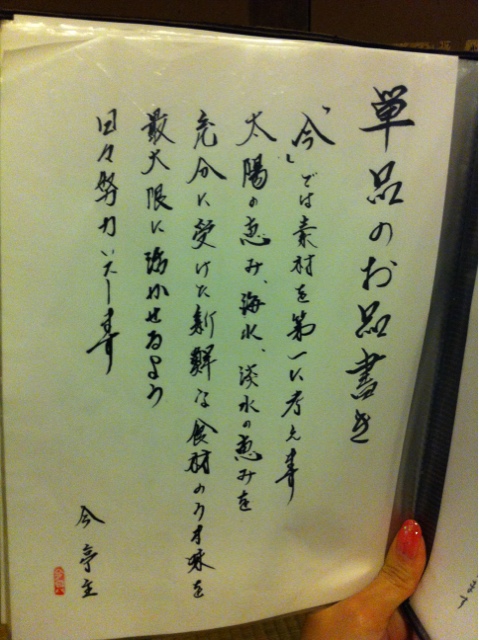 単品のお品書き
「今」では素材を第一に考え寿
太陽の恵み、海水、淡水の恵みを
充分に受けた新鮮な食材のうま味を
最大限に活かせるよう
日々努力いたし寿
今 亭主